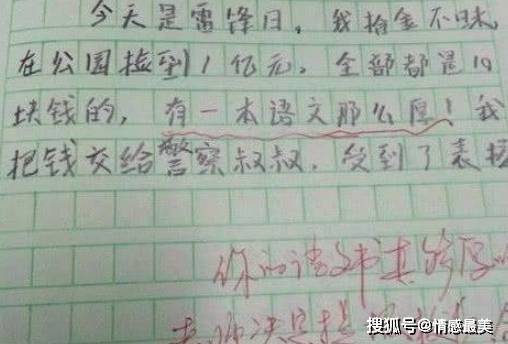 今天是雷锋日，我拾金不昧，
在公园捡到1亿元，全部都是10
块钱的，有一本语文那么厚！我
把钱交给警察叔叔，受到了表扬
你的语文书真够厚
老师决定
搜狐号@情感最美